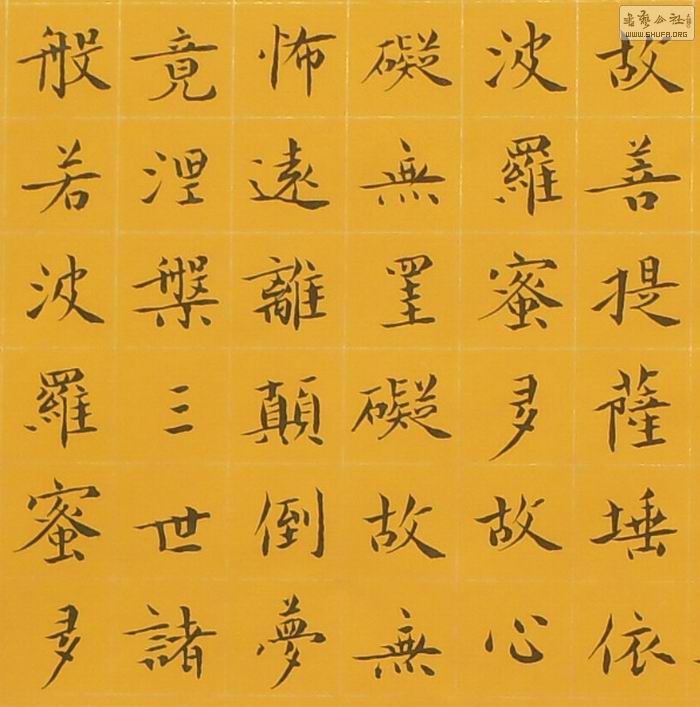 故善提薩埵依
波羅蜜多故心
礙無罣礙故無
怖遠離顛倒夢
竟涅槃三世諸
般若波羅蜜多
书艺公社
WWW.SHUFA.ORG